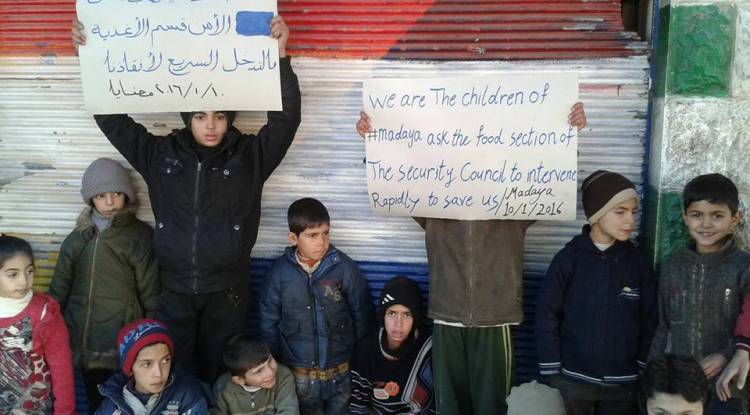 الأمن قسم الأغذية
بالتدخل السريع لأنقاذنا
مضايا ٢٠١٦/١/١٠
We are The children of
#madaya ask the food section of
The security Council to intervene
Rapidly to save us/Madaya
10/1/2016